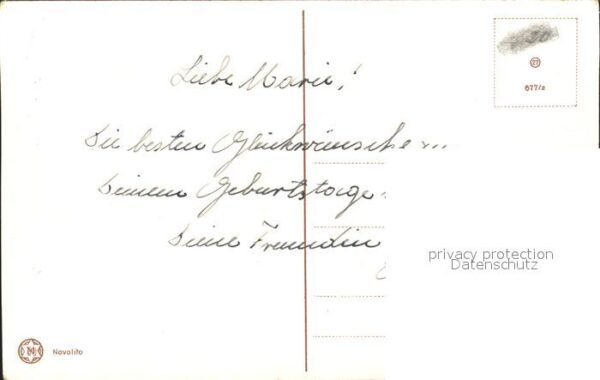 Liebe Marie!
Die besten Glückwünsche
Deinem Geburtstage
Deine Freundin
677/2
privacy protection
Datenschutz
Novolito